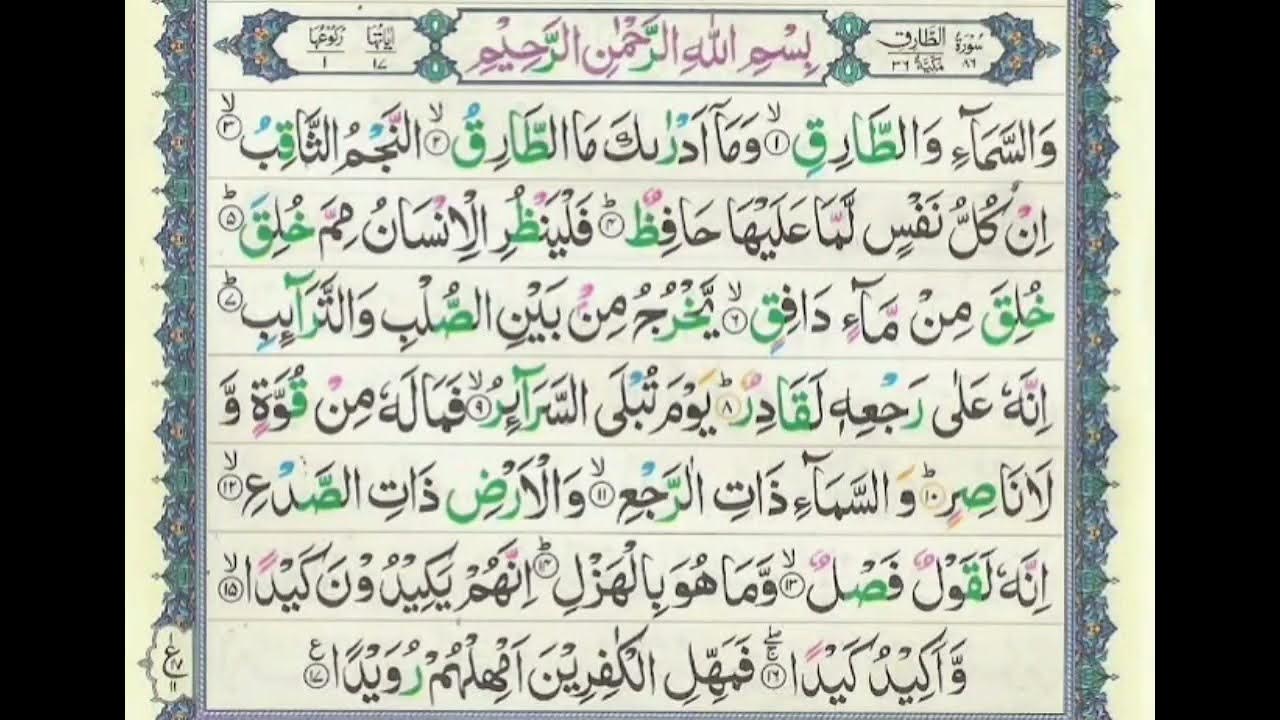 سُوْرَةُ ٨٦ الطَّارِقِ مَكِّيَّةٌ ٣٦ بِسْمِ اللّٰهِ الرَّحْمٰنِ الرَّحِيْمِ اٰيَاتُهَا ١٧ رُكُوْعُهَا ١
وَالسَّمَآءِ وَالطَّارِقِ ۙ‏﴿۱﴾ وَمَاۤ اَدْرٰىكَ مَا الطَّارِقُ ۙ‏﴿۲﴾ النَّجْمُ الثَّاقِبُ ۙ‏﴿۳﴾
اِنْ كُلُّ نَفْسٍ لَّمَّا عَلَيْهَا حَافِظٌ ؕ‏﴿۴﴾ فَلْيَنْظُرِ الْاِنْسَانُ مِمَّ خُلِقَ ؕ‏﴿۵﴾
خُلِقَ مِنْ مَّآءٍ دَافِقٍ ۙ‏﴿۶﴾ يَّخْرُجُ مِنْۢ بَيْنِ الصُّلْبِ وَالتَّرَآئِبِ ؕ‏﴿۷﴾
اِنَّهٗ عَلٰى رَجْعِهٖ لَقَادِرٌ ؕ‏﴿۸﴾ يَوْمَ تُبْلَى السَّرَآئِرُ ۙ‏﴿۹﴾ فَمَا لَهٗ مِنْ قُوَّةٍ وَّ
لَا نَاصِرٍ ؕ‏﴿۱۰﴾ وَالسَّمَآءِ ذَاتِ الرَّجْعِ ۙ‏﴿۱۱﴾ وَالْاَرْضِ ذَاتِ الصَّدْعِ ۙ‏﴿۱۲﴾
اِنَّهٗ لَقَوْلٌ فَصْلٌ ۙ‏﴿۱۳﴾ وَّمَا هُوَ بِالْهَزْلِ ؕ‏﴿۱۴﴾ اِنَّهُمْ يَكِيْدُوْنَ كَيْدًا ۙ‏﴿۱۵﴾
وَّاَكِيْدُ كَيْدًا ۚۖ‏﴿۱۶﴾ فَمَهِّلِ الْكٰفِرِيْنَ اَمْهِلْهُمْ رُوَيْدًا ‏﴿۱۷﴾ ع
ع ١ ١٧ ١١